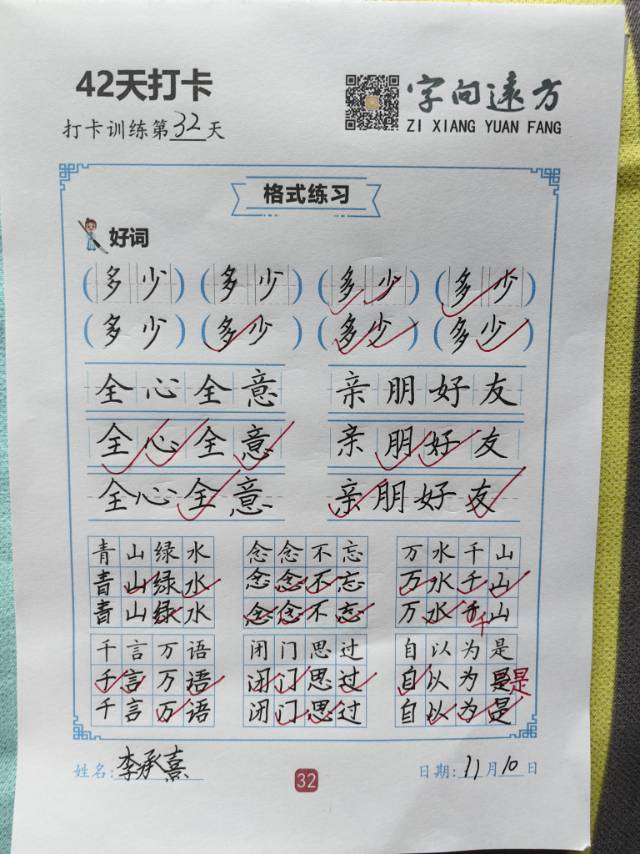 42天打卡
打卡训练第32天
字向远方
ZI XIANG YUAN FANG
格式练习
好词
(多少) (多少) (多少) (多少)
(多少) (多少) (多少) (多少)
全心全意 亲朋好友
全心全意 亲朋好友
全心全意 亲朋好友
青山绿水 念念不忘 万水千山
青山绿水 念念不忘 万水千山
青山绿水 念念不忘 万水千山
千
千言万语 闭门思过 自以为是
千言万语 闭门思过 自以为是是
千言万语 闭门思过 自以为是
姓名:李承熹 32 日期:11月10日